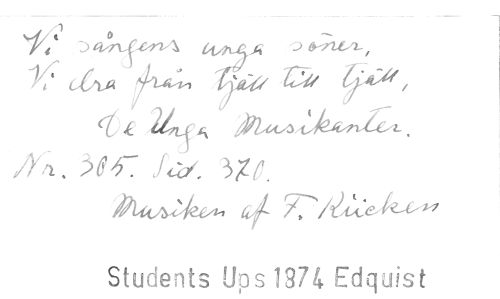 Vi sångens unga söner,
Vi dra från tjäll till tjäll,
De Unga Musikanter.
Nr. 305. Sid. 370.
Musiken af F. Kücken
Students Ups 1874 Edquist